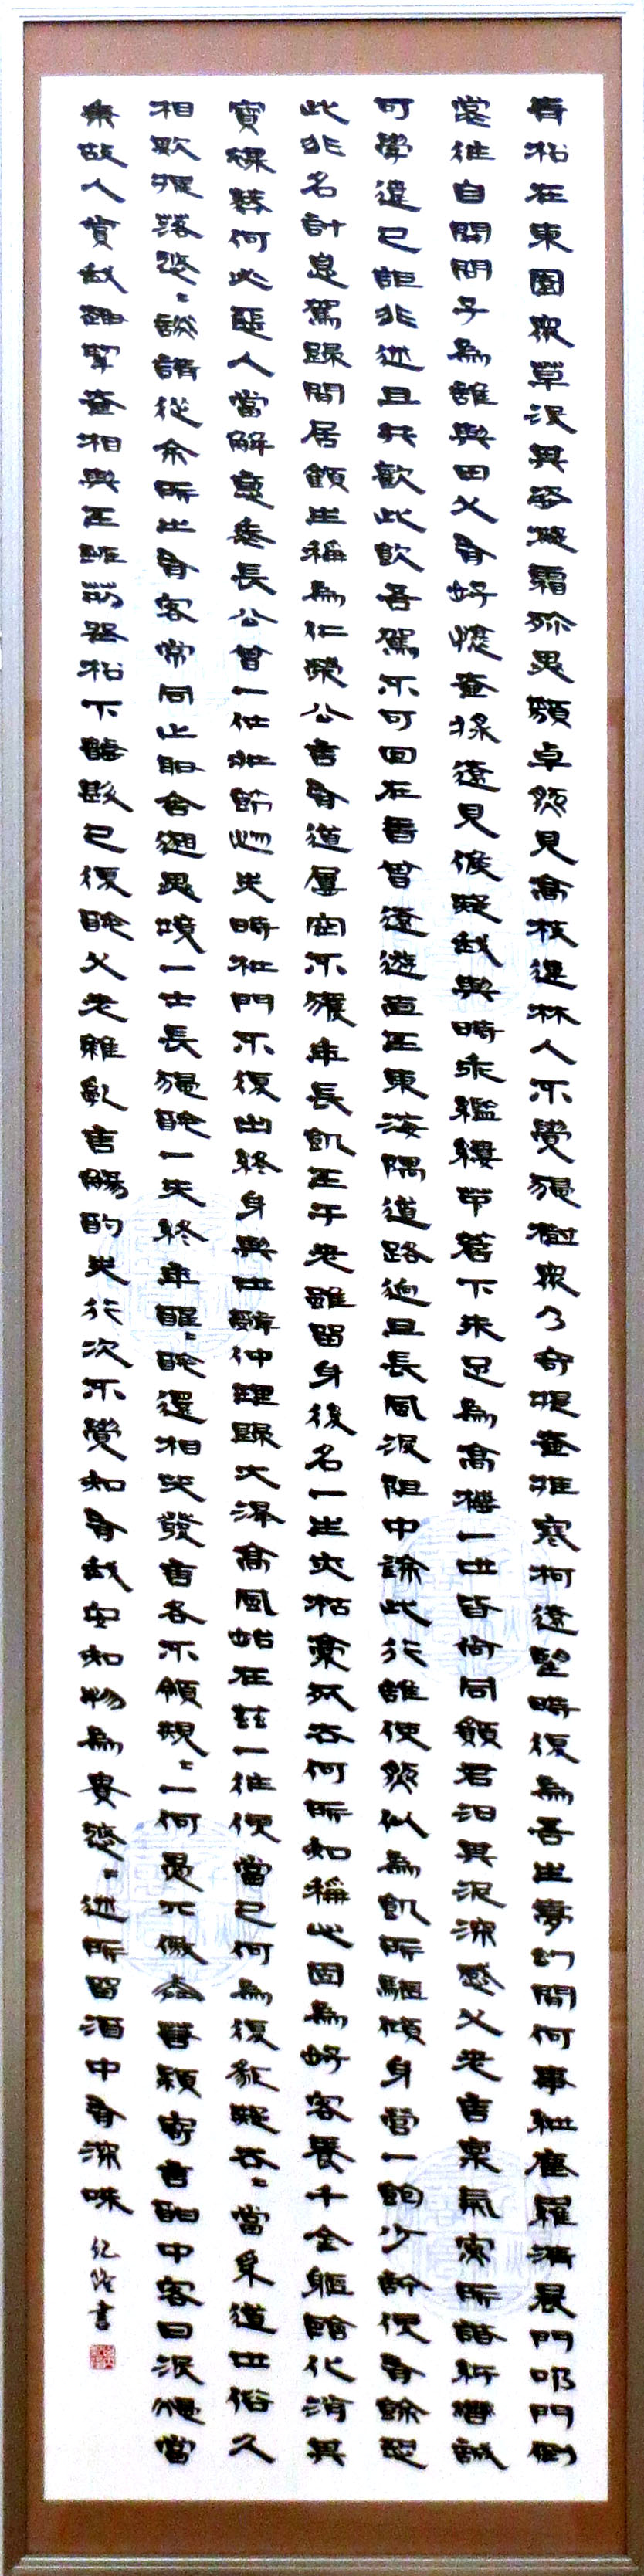 青松在東園眾草沒其姿凝霜殄異類卓然見高枝連林人不覺獨樹眾乃奇提壺挂寒柯遠望時復為吾生夢幻間何事紲塵羅清晨聞叩門倒
裳往自開問子為誰與田父有好懷壺漿遠見候疑我與時乖繿縷茅簷下未足為高栖一世皆尚同願君汩其泥深感父老言稟氣寡所諧紆轡誠
可學違已詎非迷且共歡此飲吾駕不可回在昔曾遠遊直至東海隅道路迥且長風波阻中塗此行誰使然似為飢所驅傾身營一飽少許便有餘恐
此非名計息駕歸閒居顏生稱為仁榮公言有道屢空不獲年長飢至于老雖留身後名一生亦枯槁死去何所知稱心固為好客養千金軀臨化消其
寶裸葬何必惡人當解意表長公曾一仕壯節忽失時杜門不復出終身與世辭仲理歸大澤高風始在茲一往便當已何為復狐疑去〻當奚道世俗久
相欺擺落悠〻談請從余所之有客常同止取舍邈異境一士長獨醉一夫終年醒〻醉還相笑發言各不領規〻一何愚兀傲差若穎寄言酣中客日沒燭當
秉故人賞我趣挈壺相與至班荊坐松下數斟已復醉父老雜亂言觴酌失行次不覺知有我安知物為貴悠〻迷所留酒中有深味 紀隆書